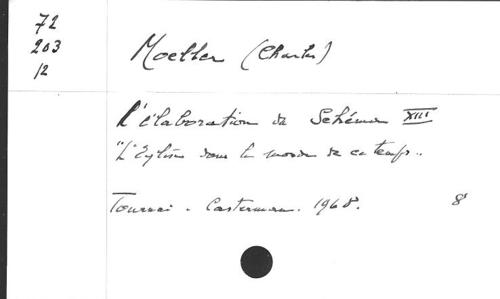 72
203
12
Moeller (Charles)
L'élaboration du Schéma XIII
"L'Eglise dans le monde de ce temps..
Tournai - Casterman. 1968. 8°